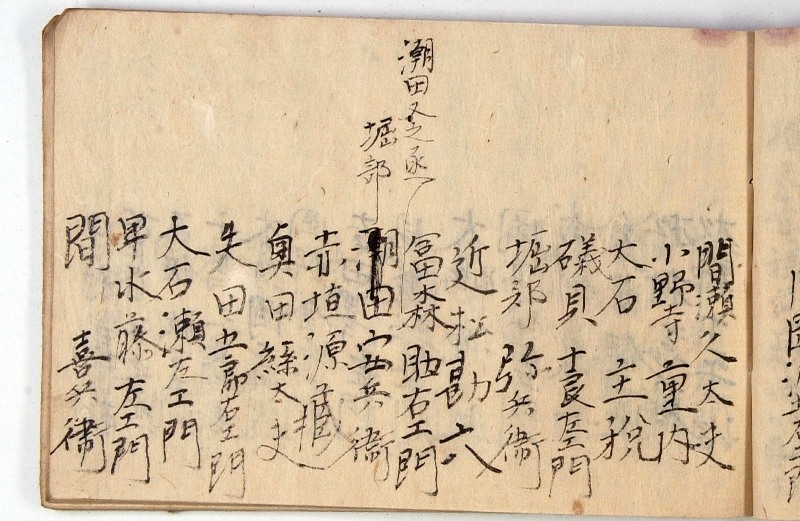 間瀬久太夫
小野寺重内
大石主税
礒貝十良左エ門
堀部弥兵衛
近松勘六
冨森助右エ門
潮田又之丞
堀部
潮田安兵衛
赤垣源蔵
奥田緜太夫
矢田五郎右エ門
大石瀬左エ門
早水藤左エ門
間喜兵衛